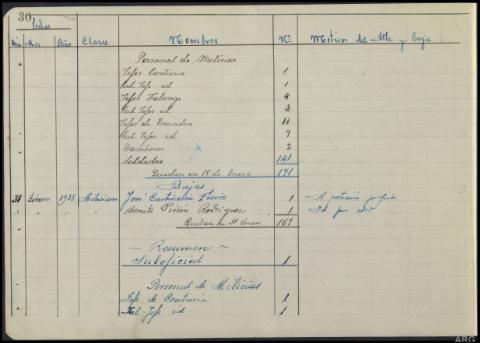 30
Fechas
Dia Mes Años Clases Nombres Nº Motivo del Alta y baja
Personal de Milicias
Jefes Centuria 1
Sub Jefe id 1
Jefes Falange 4
Sub Jefes id 3
Jefes de Escuadra
Sub Jefes id 9
2
Soldados 141
Quedan en 18 de Enero 171
Bajas
31 Enero 1938 Milicianos José Freire 1 A peticion
Benito Rodriguez 1 Id por
Quedan en 31 Enero 169
— Resumen —
Suboficial 1
Personal de Milicias
Jefe de Centuria 1
Sub-Jefe id 1
ARG